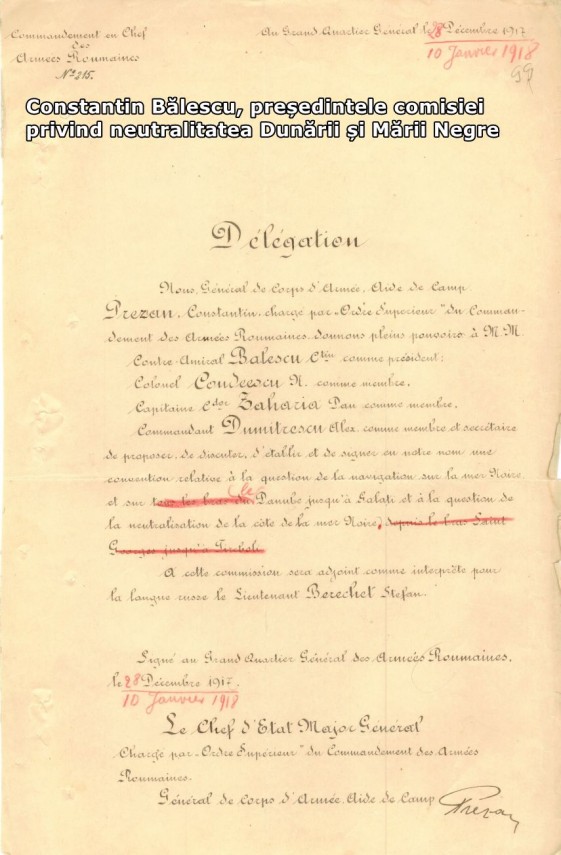 Commandement en Chef
des
Armées Roumaines
Nº 215.
Au Grand Quartier Général le 28 Décembre 1917
10 Janvier 1918
99
Constantin Bălescu, președintele comisiei
privind neutralitatea Dunării și Mării Negre
Délégation
Nous, Général de Corps d'Armée, Aide de Camp
Prezan, Constantin, chargé par „Ordre Supérieur" du Comman-
dement des Armées Roumaines, donnons pleins pouvoirs à M.M.
Contre-Amiral Balescu Ctin comme président;
Colonel Condeescu N. comme membre,
Capitaine Cdor Zaharia Pau comme membre,
Commandant Dumitrescu Alex. comme membre et secrétaire
de proposer, de discuter, d'établir et de signer en notre nom une
convention relative à la question de la navigation sur la mer Noire
et sur tous les bras du le Danube jusqu'à Galati et à la question de
la neutralisation de la côte de la mer Noire, depuis le bras Saint
Georges jusqu'à
A cette commission sera adjoint comme interprète pour
la langue russe le Lieutenant Berechet Stefan.
Signé au Grand Quartier Général des Armées Roumaines,
le 28 Décembre 1917.
10 Janvier 1918
Le Chef d'Etat Major Général
Chargé par „Ordre Supérieur" du Commandement des Armées
Roumaines.
Général de Corps d'Armée, Aide de Camp
Prezan